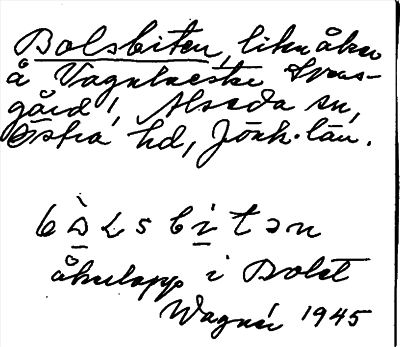 Bolsbiten, liten åker
å Vagnhester Svens-
gård, Alseda sn,
Östra hd, Jönk. län.
bòLsbitən
åkerlapp i Bolet
Wagnér 1945